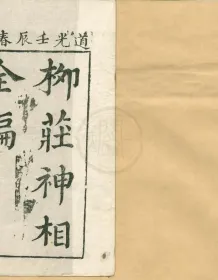 道光壬辰春
柳莊神相
全編